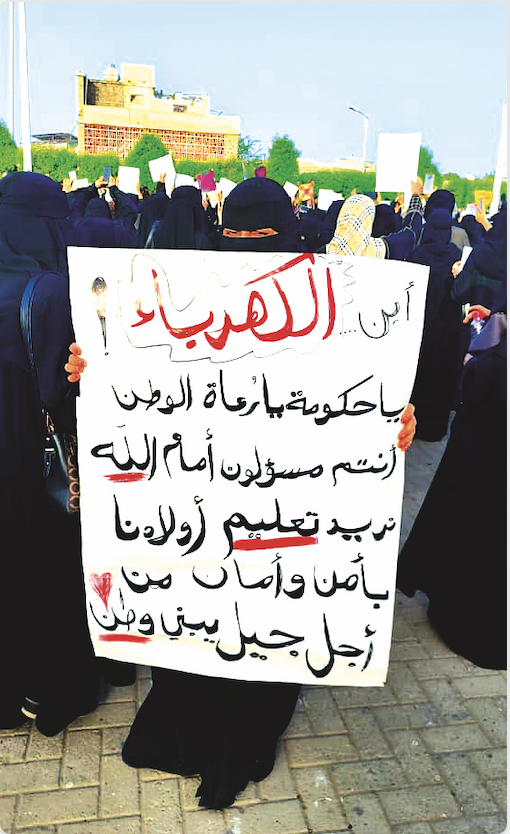 أين... الكهرباء !
يا حكومة يا رُعاة الوطن
أنتم مسؤولون أمام الله
نريد تعليم أولادنا
بأمن وأمان من
أجل جيل يبني وطن